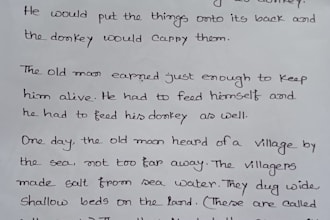 donkey.
He would put the things onto its back and
the donkey would carry them.
The old man earned just enough to keep
him alive. He had to feed himself and
he had to feed his donkey as well.
One day, the old man heard of a village by
the sea, not too far away. The villagers
made salt from sea water. They dug wide
shallow beds on the land. (These are called